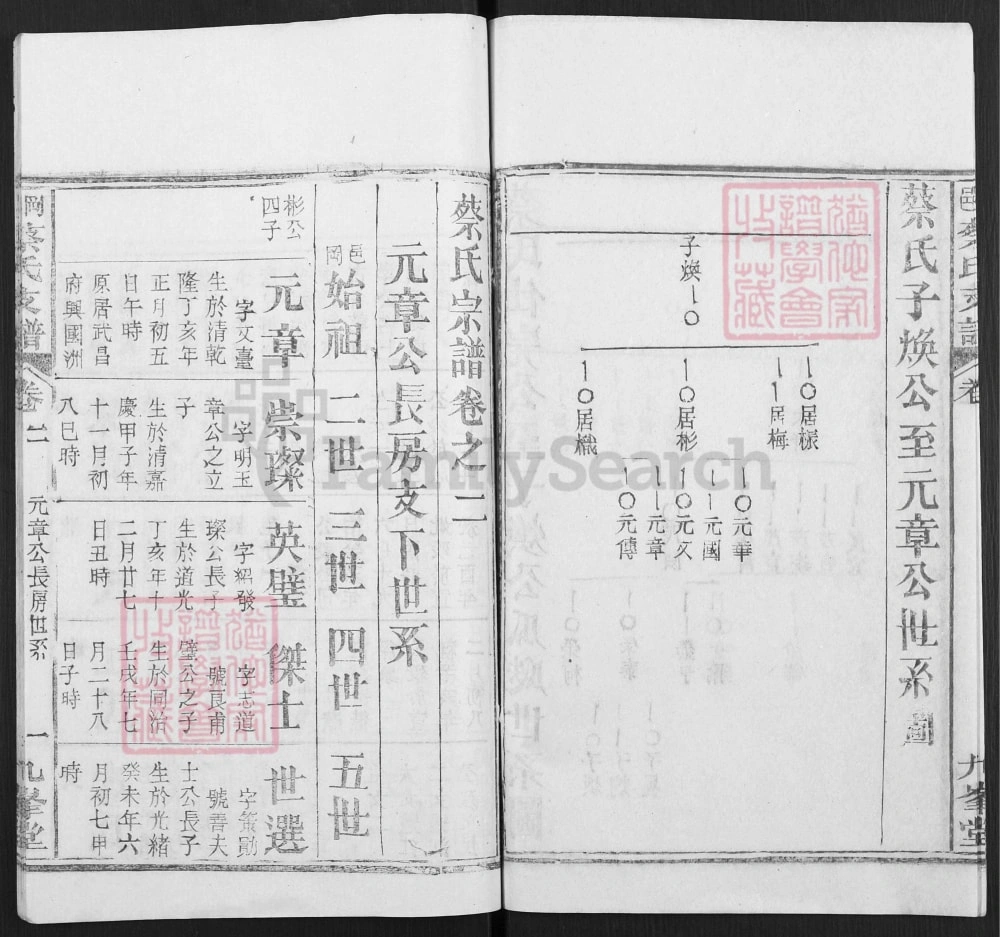 蔡氏子煥公至元章公世系圖
子煥
居椂
居梅
居彬
居樴
元華
元國
元文
元章
元傳
九峯堂
蔡氏宗譜卷之二
元章公長房支下世系
邑岡始祖 二世 三世 四世 五世
彬公四子
元章
字文臺
生於清乾
隆丁亥年
正月初五
日午時
原居武昌
府興國洲
崇璨
字明玉
章公之立
子
生於清嘉
慶甲子年
十一月初
八巳時
英璧
字紹發
璨公長子
生於道光
丁亥年十
二月廿七
日丑時
傑士
字志道
號良甫
璧公之子
生於同治
壬戌年七
月二十八
日子時
世選
字策勛
號善夫
士公長子
生於光緒
癸未年六
月初七申
時
岡蔡氏支譜
卷二
元章公長房世系
一
九峯堂
FamilySearch